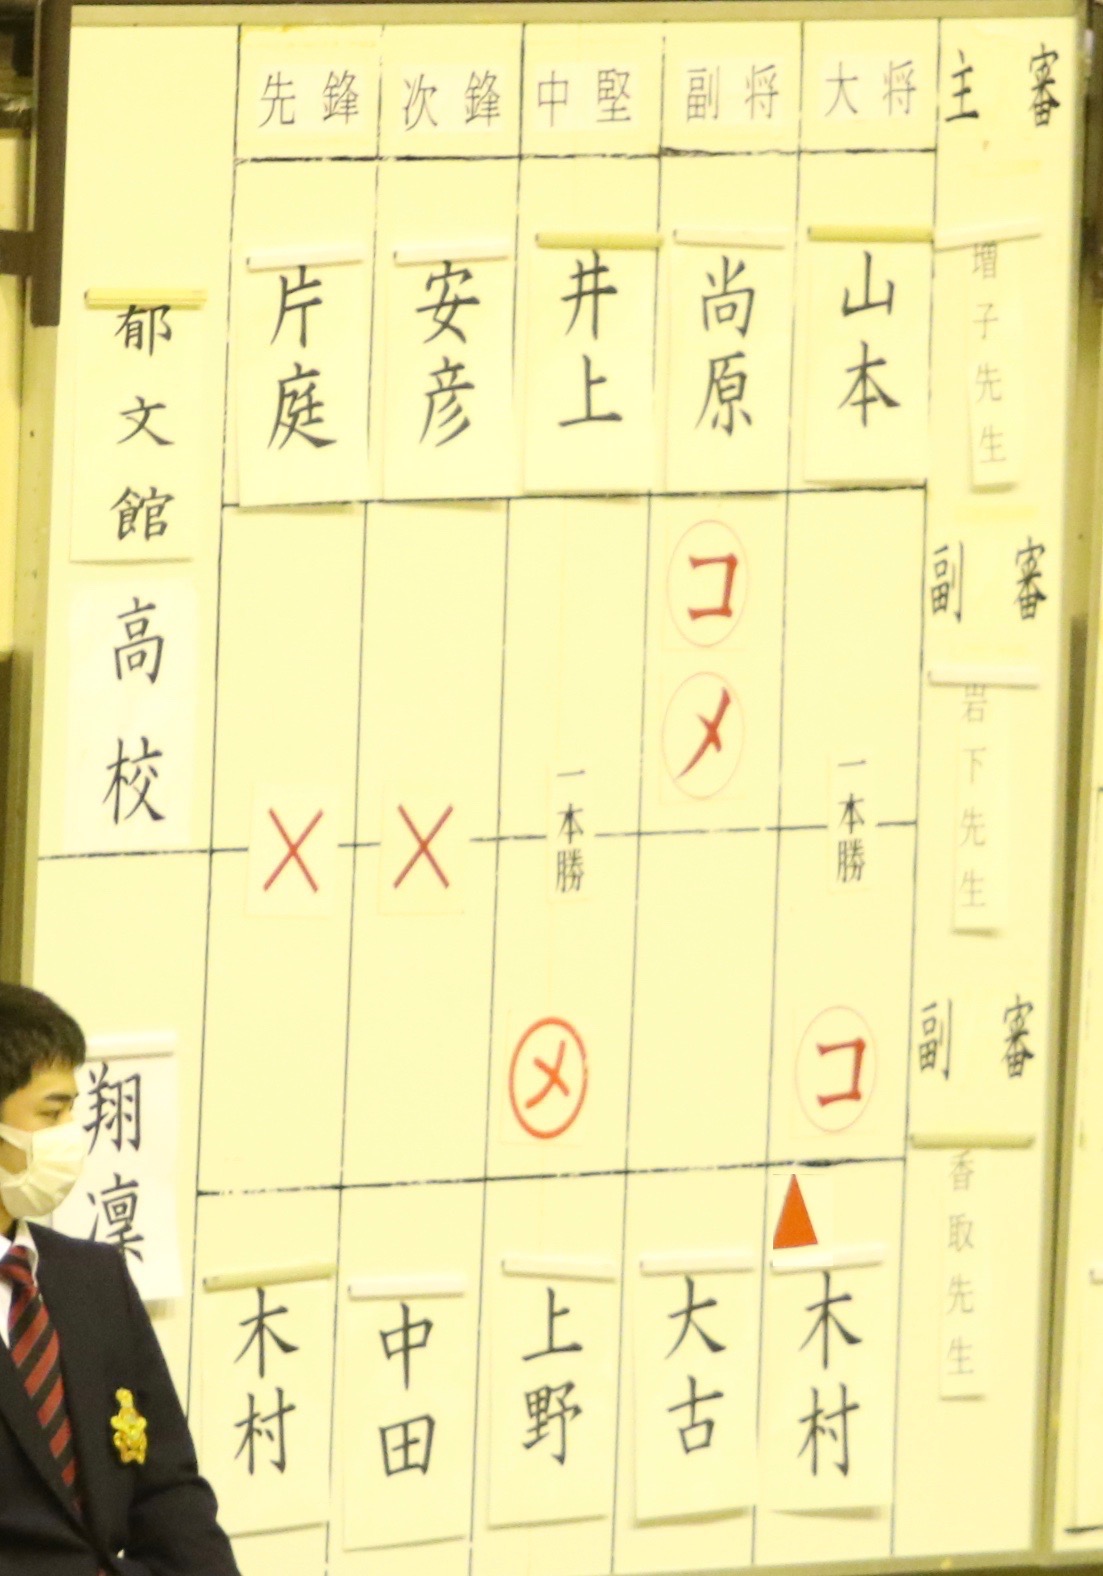 先鋒 次鋒 中堅 副将 大将 主審
郁文館高校
片庭
安彦
井上
尚原
山本
増子先生
副審
岩下先生
副審
香取先生
コ
メ
× × 一本勝 一本勝
メ
コ
翔凜
木村
中田
上野
大古
木村